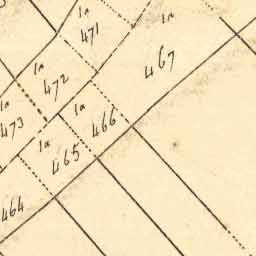 1a
471
1a
467
1a
472
1a
473
1a
466
1a
465
464